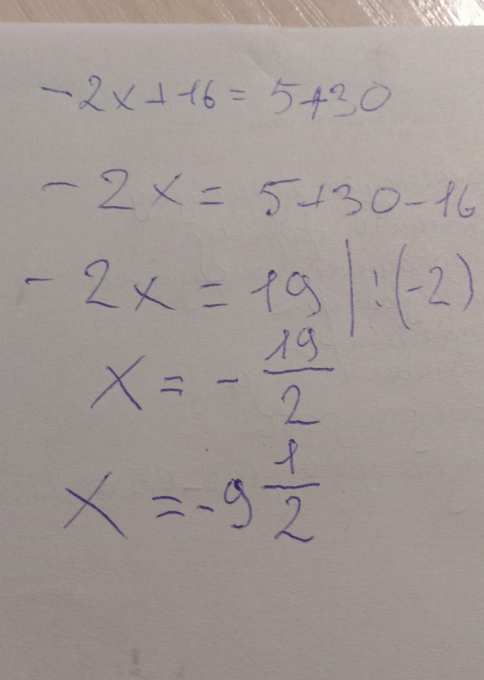 -2x+16=5+30
-2x=5+30-16
-2x=19|:(-2)
x=-19/2
x=-9 1/2